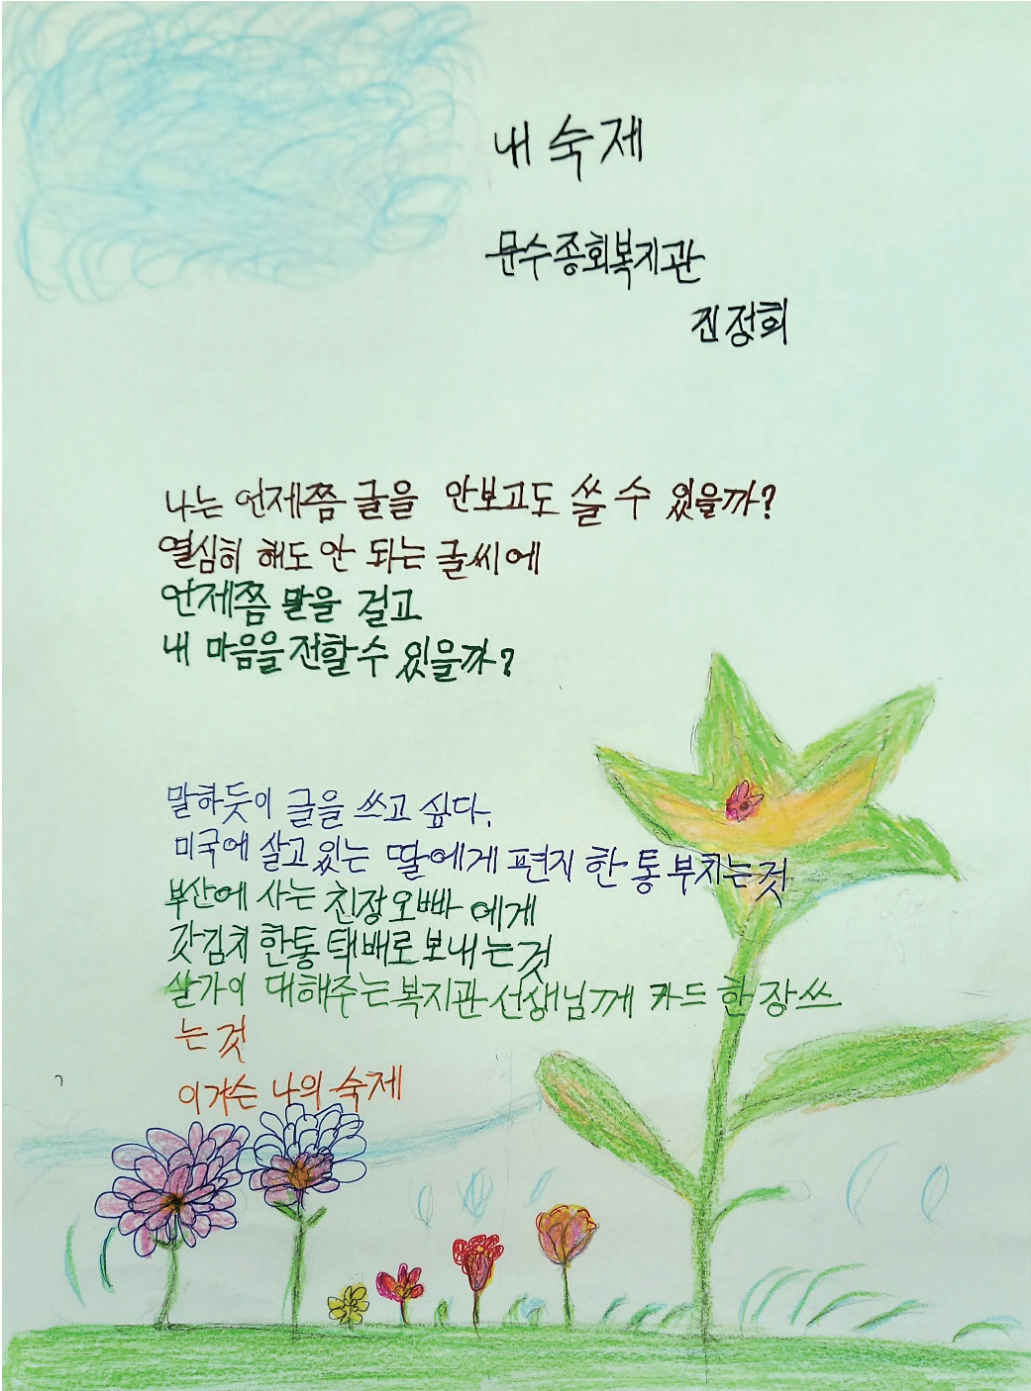 내 숙제
문수종회복지관
진정희
나는 언제쯤 글을 안보고도 쓸 수 있을까?
열심히 해도 안 되는 글씨에
언제쯤 말을 걸고
내 마음을 전할수 있을까?
말하듯이 글을 쓰고 싶다.
미국에 살고 있는 딸에게 편지 한 통 부치는 것
부산에 사는 친정오빠 에게
갓김치 한통 택배로 보내는 것
살가이 대해주는 복지관 선생님께 카드 한 장 쓰
는 것
이거슨 나의 숙제